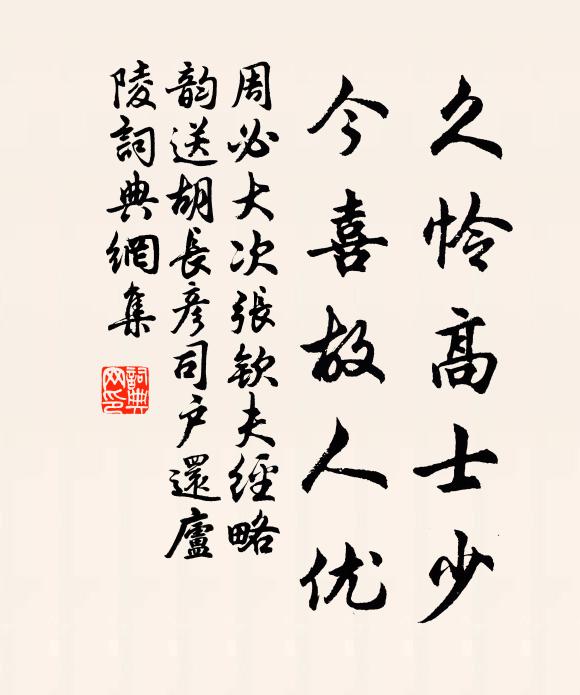 久怜高士少
今喜故人优
周必大次張欽夫經略
韵送胡長彦司户還廬
陵詞典網集
詞典
网印